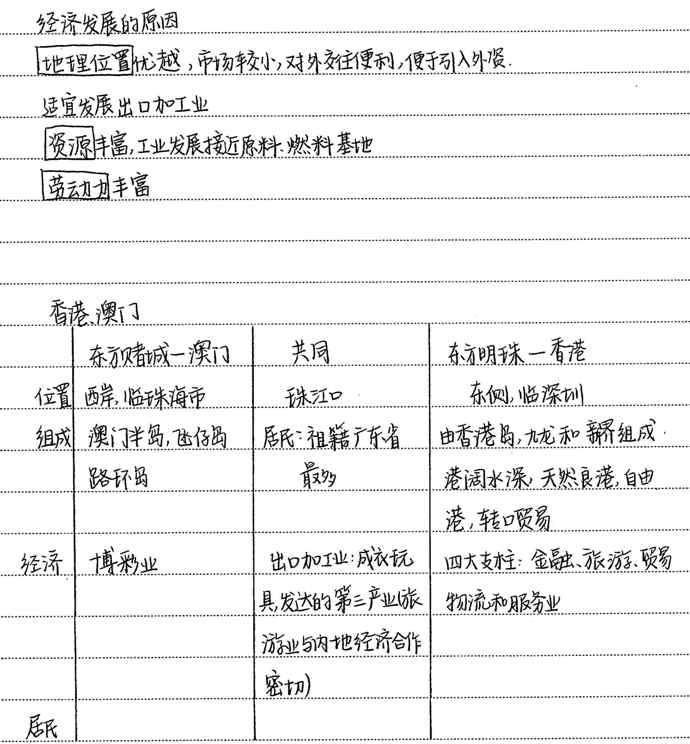 经济发展的原因
地理位置优越,市场较小,对外交往便利,便于引入外资.
适宜发展出口加工业
资源丰富,工业发展接近原料、燃料基地
劳动力丰富
香港、澳门
东方赌城—澳门 共同 东方明珠—香港
位置 西岸,临珠海市 珠江口 东侧,临深圳
组成 澳门半岛,氹仔岛 居民:祖籍广东省 由香港岛,九龙和新界组成.
路环岛 最多 港阔水深,天然良港,自由
港,转口贸易
经济 博彩业 出口加工业:成衣玩 四大支柱:金融、旅游、贸易
具,发达的第三产业(旅 物流和服务业
游业与内地经济合作
密切)
居民